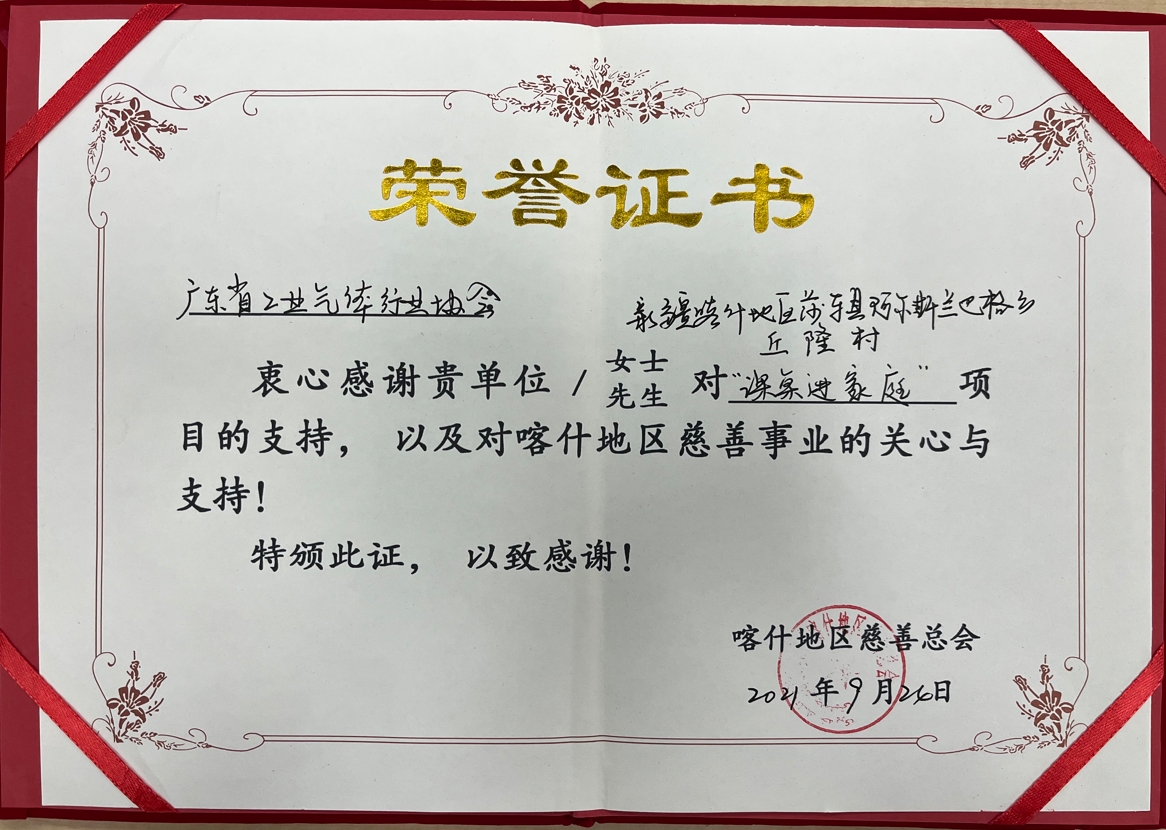 荣誉证书
广东省工业气体行业协会
新疆喀什地区莎车县孜尔斯兰巴格
丘隆村
衷心感谢贵单位/女士
先生 对“课桌进家庭”项
目的支持，以及对喀什地区慈善事业的关心与
支持！
特颁此证，以致感谢！
喀什地区慈善总会
2021年9月26日